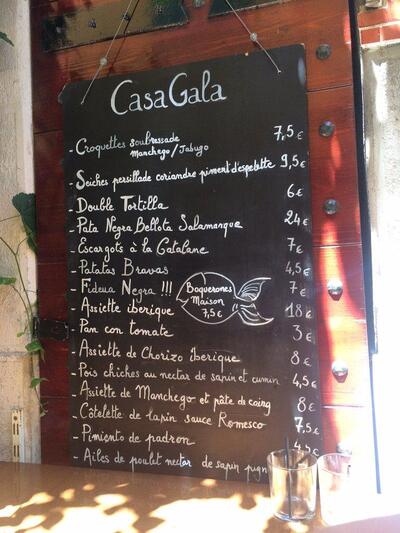 CasaGala
- Croquettes Soubressade Manchego/Jabugo 7,5€
- Seiches persillade coriandre piment d'espelette 9,5€
- Double Tortilla 6€
- Pata Negra Bellota Salamanque 24€
- Escargots à la Catalane 7€
- Patatas Bravas 4,5€
- Fideua Negra !!! 7€
Boquerones
Maison
7,5€
- Assiette iberique 18€
- Pan con tomate 3€
- Assiette de Chorizo Iberique 8€
- Pois chiches au nectar de sapin et cumin 4,5€
- Assiette de Manchego et pâte de coing 8€
- Côtelette de lapin sauce Romesco 7,5
- Pimiento de padron 4,5
- Ailes de poulet nectar de sapin